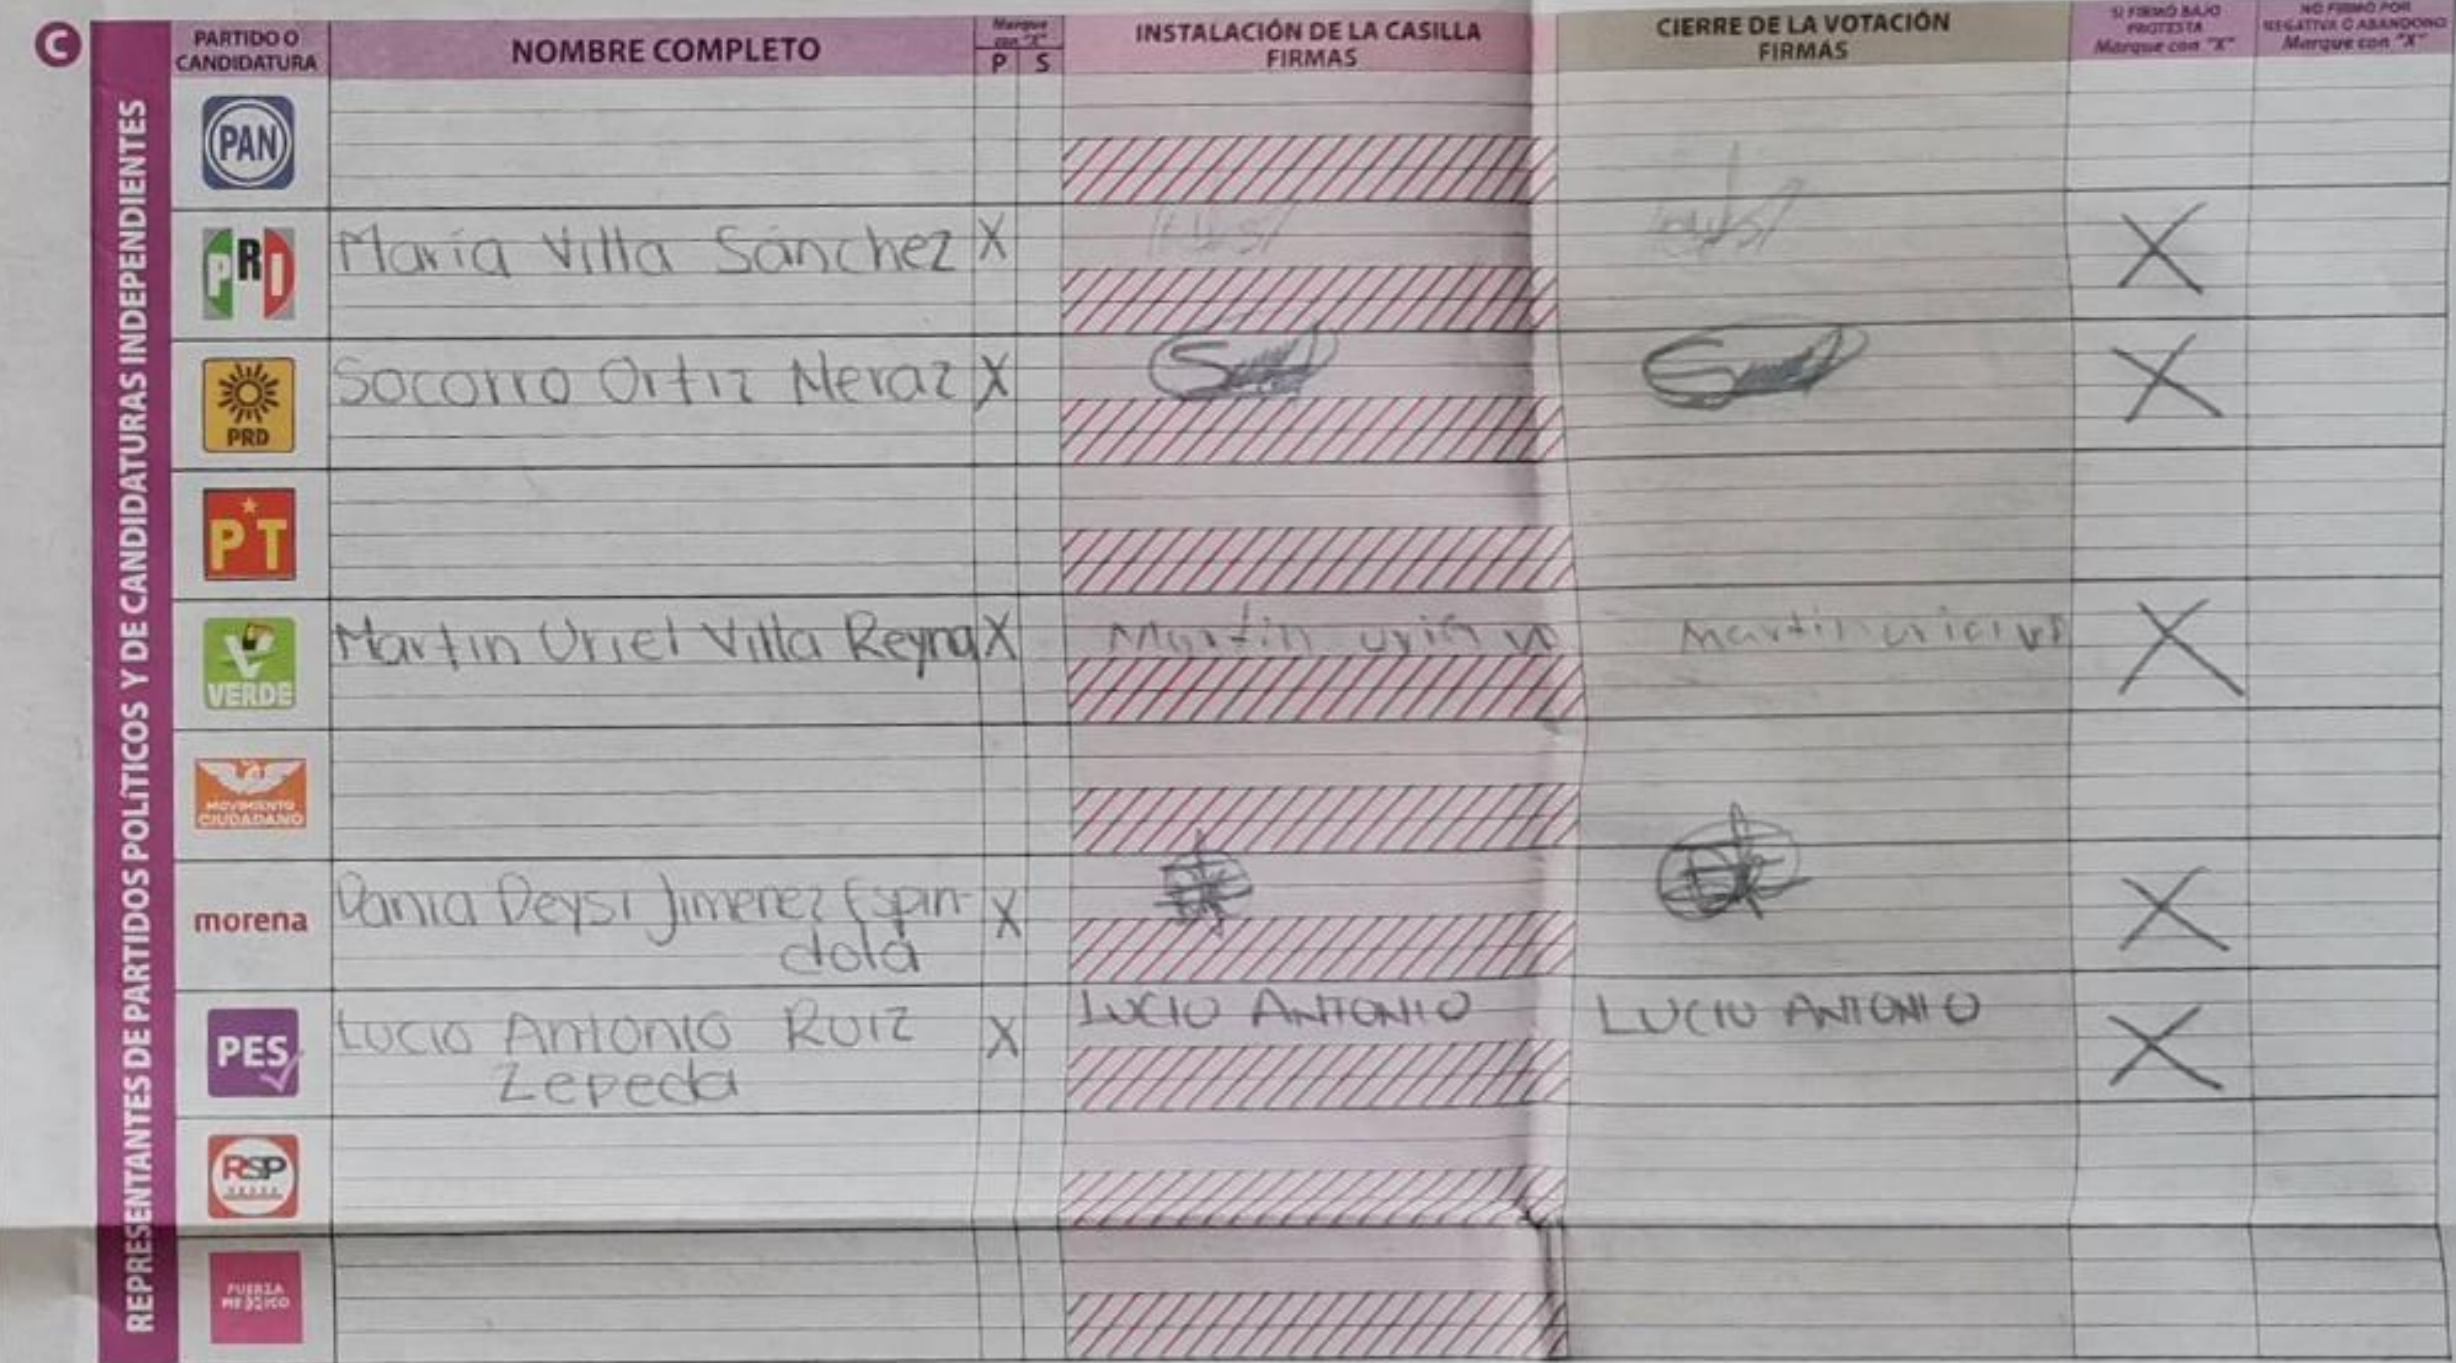 C
REPRESENTANTES DE PARTIDOS POLÍTICOS Y DE CANDIDATURAS INDEPENDIENTES
PARTIDO O
CANDIDATURA
NOMBRE COMPLETO
Marque
con "X"
P S
INSTALACIÓN DE LA CASILLA
FIRMAS
CIERRE DE LA VOTACIÓN
FIRMAS
SI FIRMÓ BAJO
PROTESTA
Marque con "X"
NO FIRMÓ POR
NEGATIVA O ABANDONO
Marque con "X"
PAN
PRI
María Villa Sánchez X X
PRD
Socorro Ortiz Meraz X X
PT
VERDE
Martin Uriel Villa Reyna X Martin X
MOVIMIENTO
CIUDADANO
morena
Dania Deysi Jimenez Espin-
dola X X
PES
Lucio Antonio Ruiz
Zepeda X LUCIO ANTONIO LUCIO ANTONIO X
RSP
FUERZA
MÉXICO